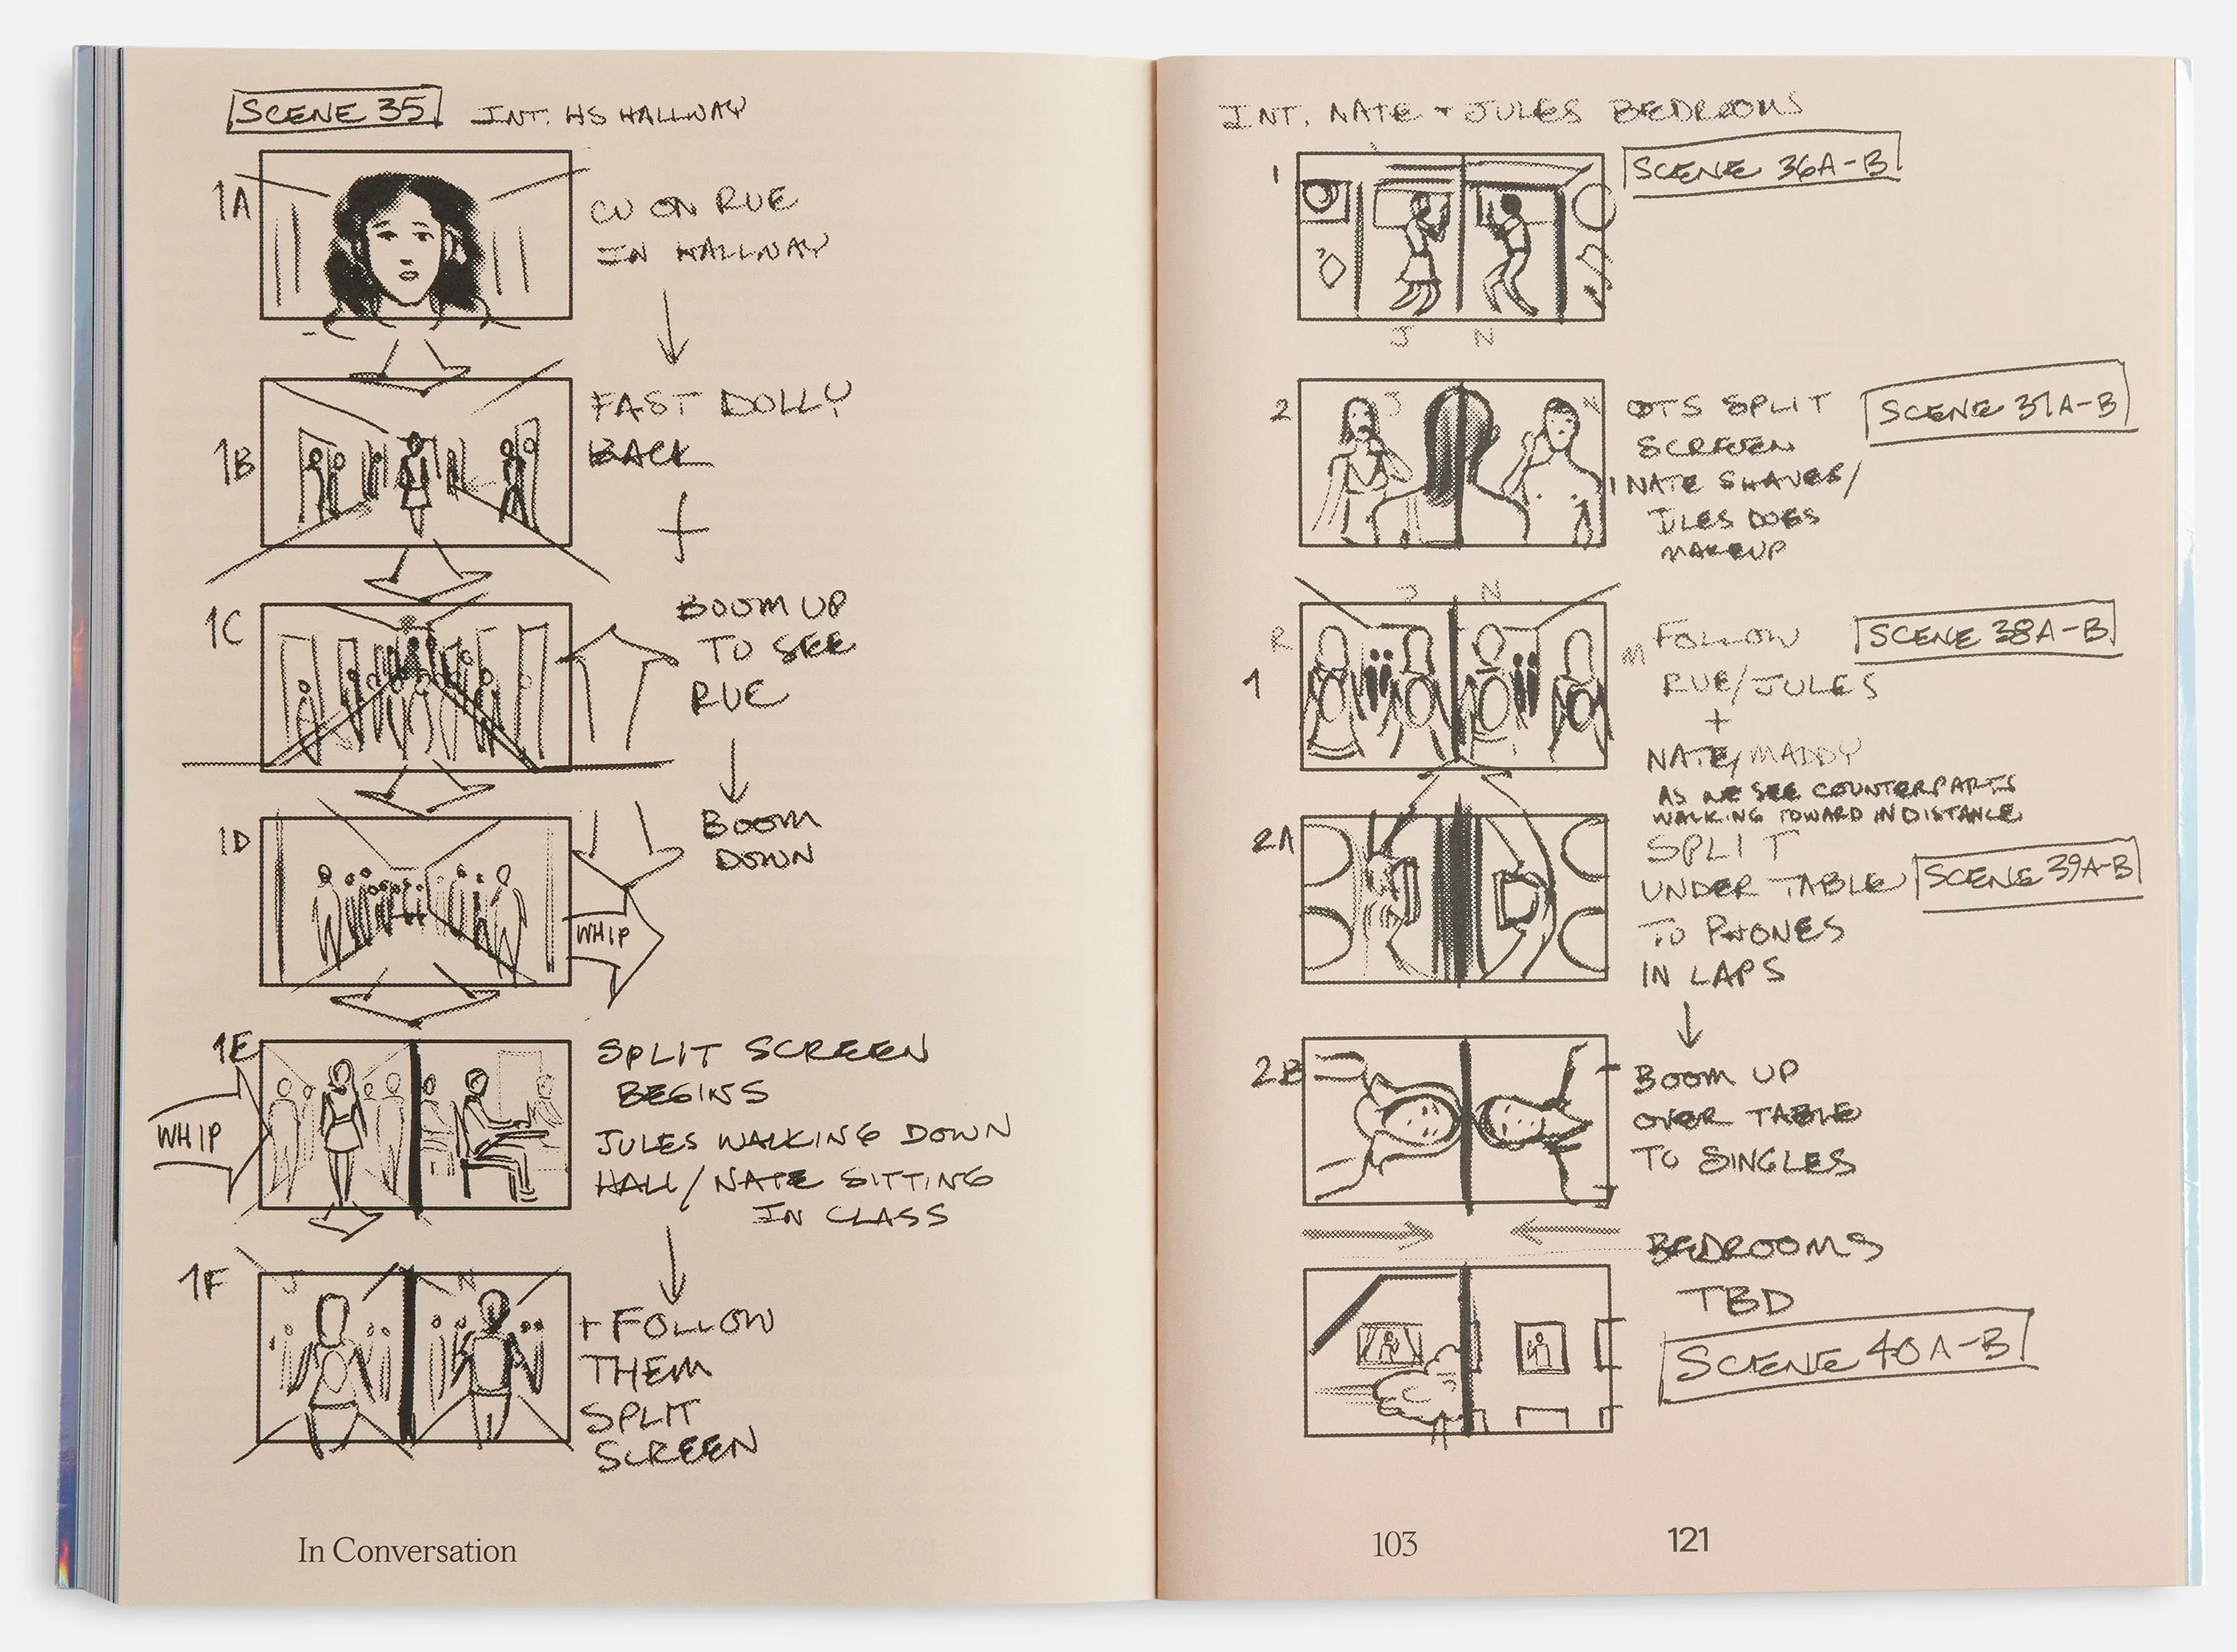 SCENE 35 INT. HS HALLWAY
1A
CU ON RUE
IN HALLWAY
1B
FAST DOLLY
BACK
+
1C
BOOM UP
TO SEE
RUE
1D
BOOM
DOWN
WHIP
1E
WHIP
SPLIT SCREEN
BEGINS
JULES WALKING DOWN
HALL/NATE SITTING
IN CLASS
1F
J N
+ FOLLOW
THEM
SPLIT
SCREEN
In Conversation
INT. NATE + JULES BEDROOMS
1
SCENE 36A-B
J N
2
J N
OTS SPLIT
SCREEN
NATE SHAVES/
JULES DOES
MAKEUP
SCENE 37A-B
J N
R M
1
FOLLOW
RUE/JULES
+
NATE/MADDY
AS WE SEE COUNTERPARTS
WALKING TOWARD IN DISTANCE
SCENE 38A-B
2A
SPLIT
UNDER TABLE
TO PHONES
IN LAPS
SCENE 39A-B
2B
BOOM UP
OVER TABLE
TO SINGLES
BEDROOMS
TBD
SCENE 40A-B
103 121